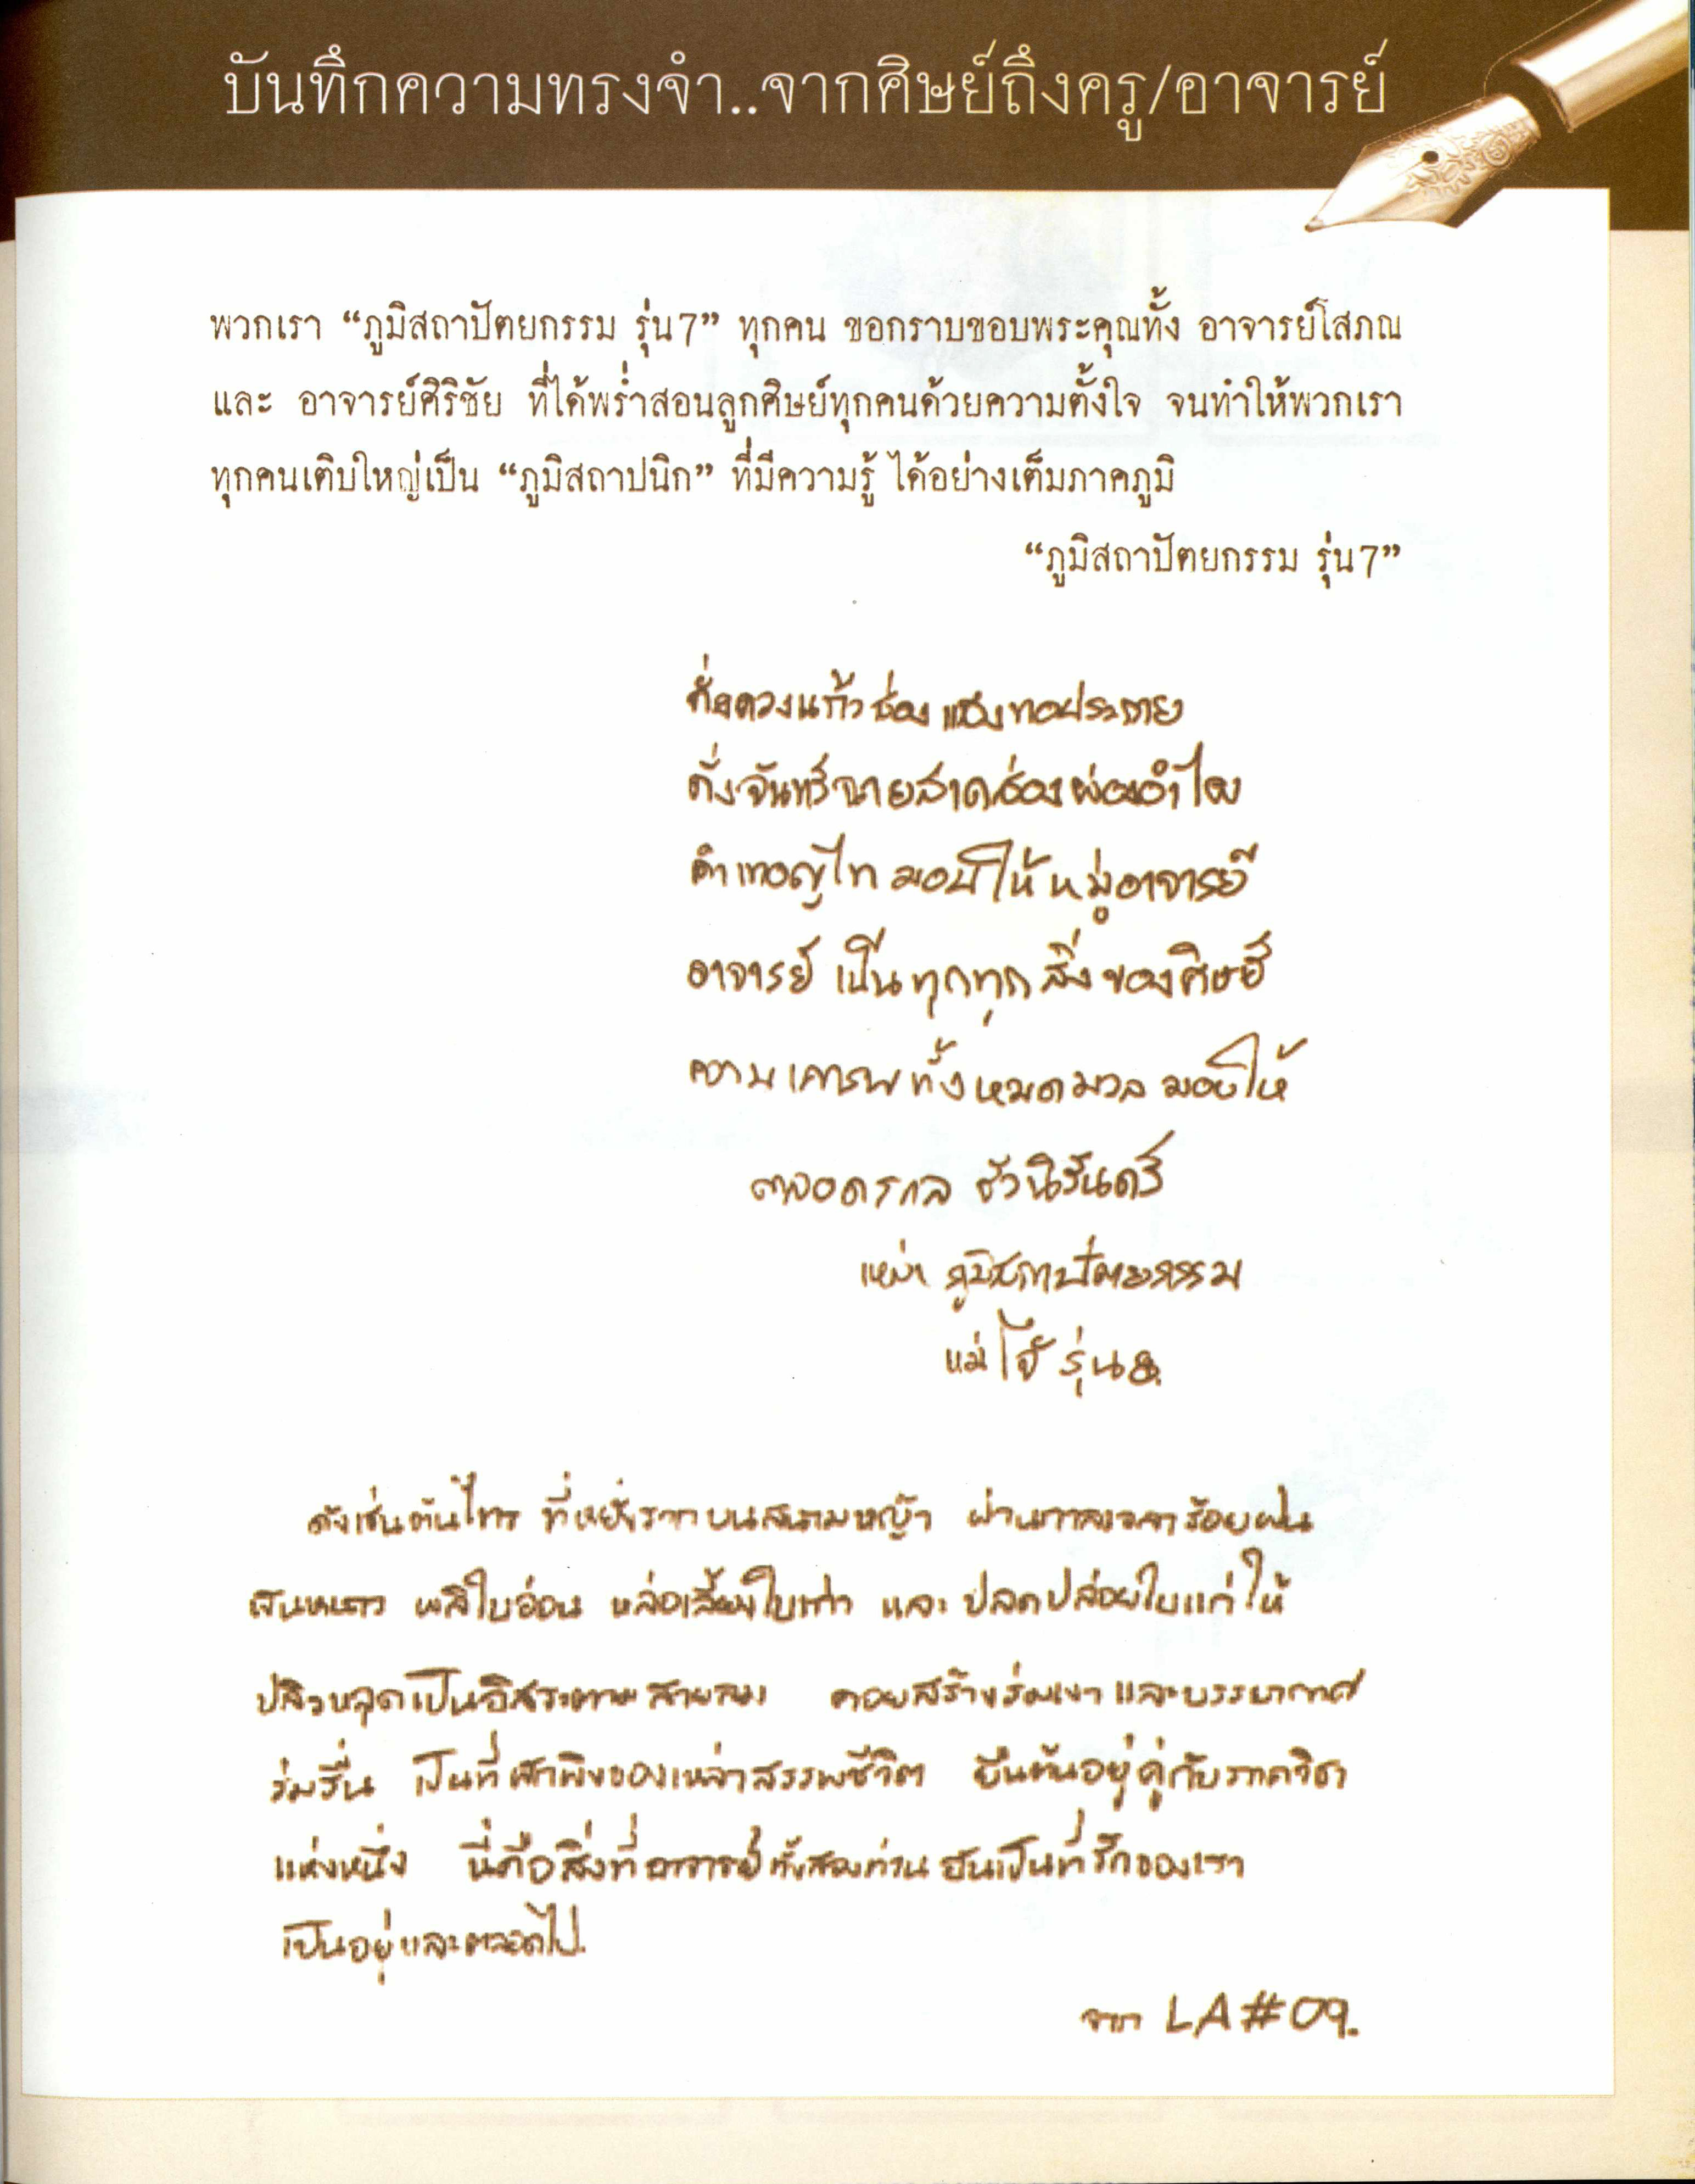 บันทึกความทรงจำ..จากศิษย์ถึงครู/อาจารย์
พวกเรา “ภูมิสถาปัตยกรรม รุ่น7” ทุกคน ขอกราบขอบพระคุณทั้ง อาจารย์โสภณ
และ อาจารย์ศิริชัย ที่ได้พร่ำสอนลูกศิษย์ทุกคนด้วยความตั้งใจ จนทำให้พวกเรา
ทุกคนเติบใหญ่เป็น “ภูมิสถาปนิก” ที่มีความรู้ ได้อย่างเต็มภาคภูมิ
“ภูมิสถาปัตยกรรม รุ่น7”
ดั่งดวงแก้วส่องแสงทอประกาย
ดั่งจันทร์ฉายสาดส่องผ่องอำไพ
คำเทอญไท มอบให้หมู่อาจารย์
อาจารย์ เป็นทุกทุกสิ่งของศิษย์
ความเคารพทั้งหมดมวลมอบให้
ตลอดรกล ชั่วนิรันดร์
เหล่า ภูมิสถาปัตยกรรม
แม่โจ้ รุ่น8.
ดังเช่นต้นไทร ที่หยั่งรากบนสนามหญ้า ผ่านกาลเวลาร้อยฝน
พันหนาว ผลิใบอ่อน หล่อเลี้ยงใบเก่า และ ปลดปล่อยใบแก่ให้
ปลิวหลุดเป็นอิสระตามสายลม คอยสร้างร่มเงา และบรรยากาศ
ร่มรื่น เป็นที่พักพิงของเหล่าสรรพชีวิต ยืนต้นอยู่คู่กับภาควิชา
แห่งหนึ่ง นี่คือสิ่งที่อาจารย์ทั้งสองท่าน อันเป็นที่รักของเรา
เป็นอยู่และตลอดไป.
จาก LA#09.